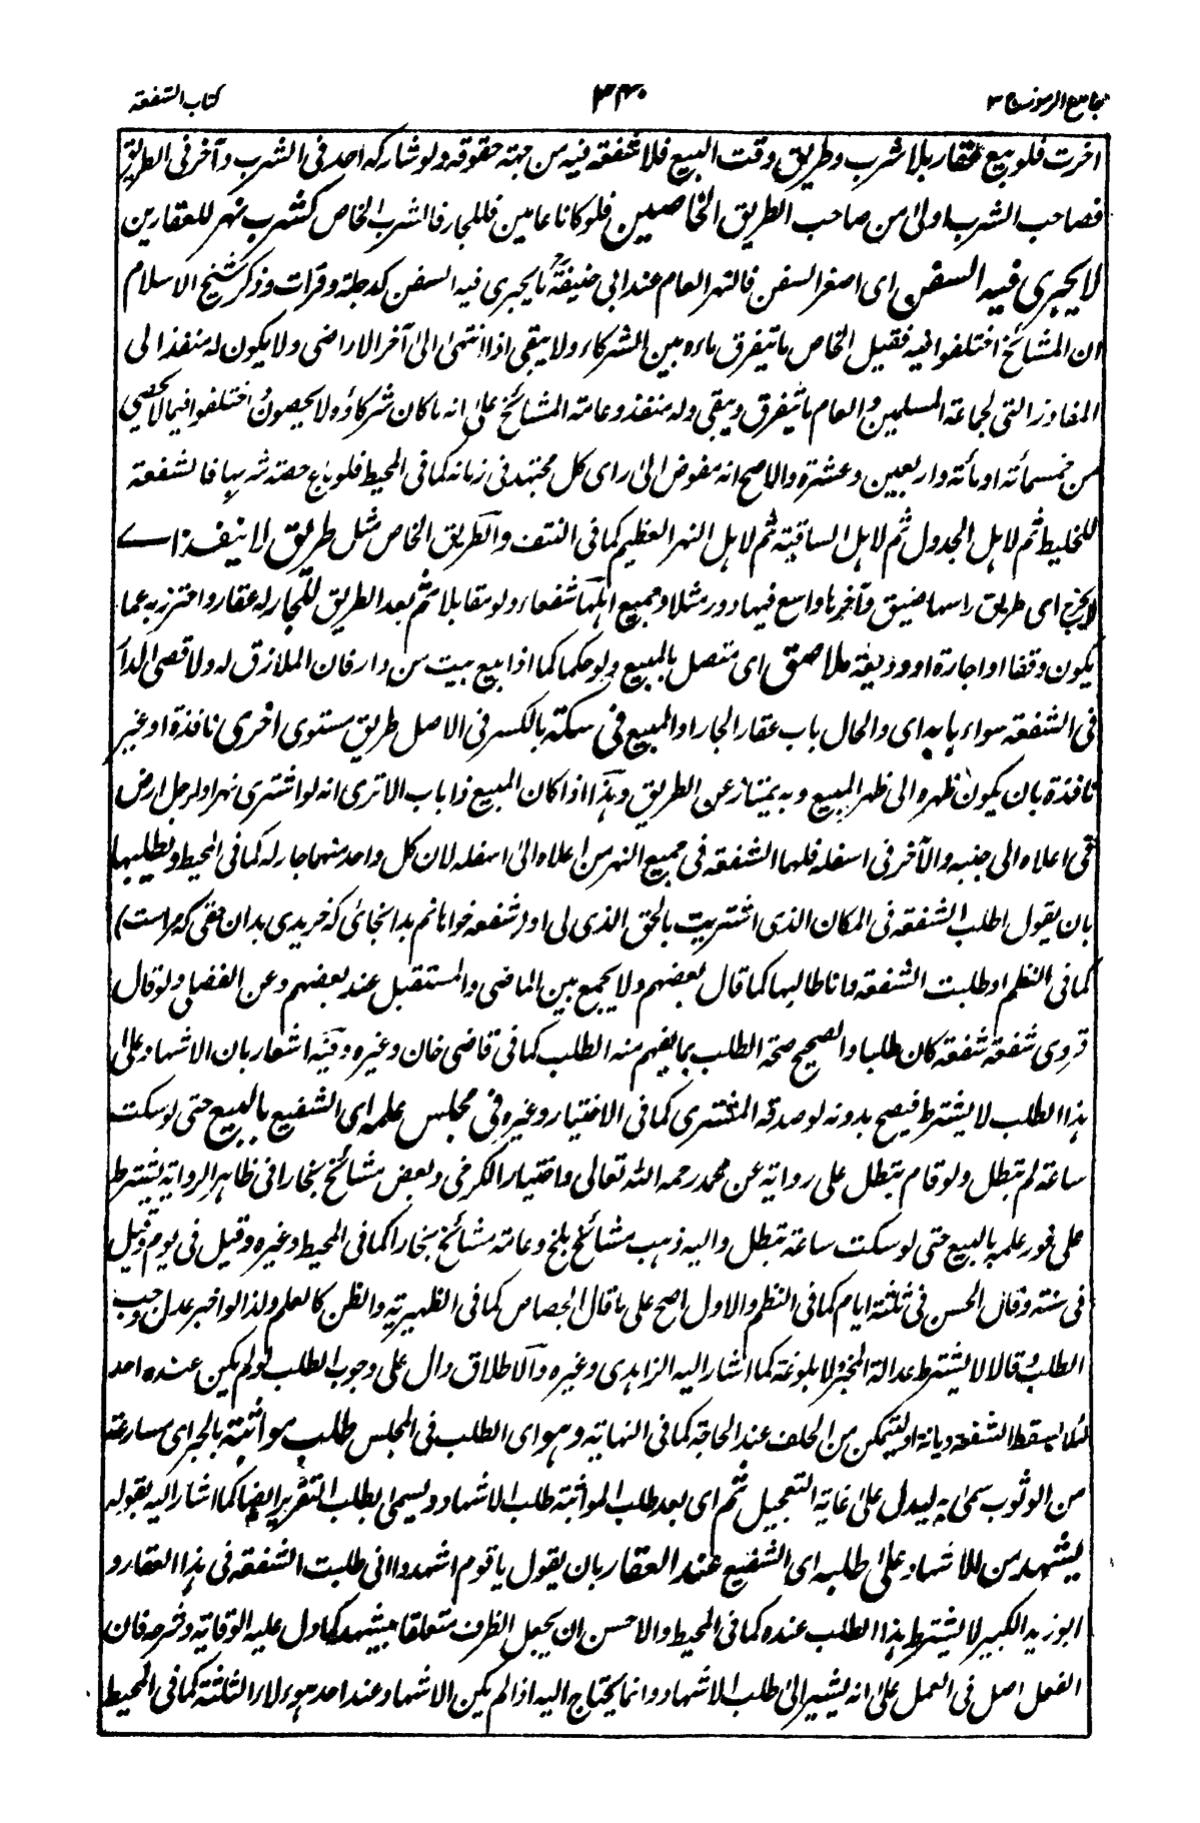 جامع الرموز ج ٣
٣٤٠
كتاب الشفعة
اخرت فلو بيع عقار بلا شرب وطريق وقت البيع فلا شفعة فيه من جهة حقوقه ولو شاركه احد فى الشرب وآخر فى الطريق
فصاحب الشرب اولى من صاحب الطريق الخاصين فلو كانا عامين فللجار فالشرب الخاص كشرب نهر للعقارين
لا يجرى فيه السفن اى اصغر السفن فالنهر العام عند ابى حنيفة ما يجرى فيه السفن كدجلة وفرات وذكر شيخ الاسلام
ان المشائخ اختلفوا فيه فقيل الخاص ما يتفرق ماءه بين الشركاء ولا يبقى اذا انتهى الى آخر الاراضى ولا يكون له منفذ الى
المفاوز التى لجماعة المسلمين والعام ما يتفرق ويبقى وله منفذ وعامة المشائخ على انه ما كان شركاؤه لا يحصون اختلفوا فيما لا يحصى
من خمسمائة او مائة واربعين وعشرة والاصح انه مفوض الى راى كل مجتهد فى زمانه كما فى المحيط فلو باع حصته شربها فالشفعة
للخليط ثم لاهل الجدول ثم لاهل الساقية ثم لاهل النهر العظيم كما فى النتف والطريق الخاص مثل طريق لا ينفذ اے
لا يخرج اى طريق راسها ضيق وآخرها واسع فيها دور مثلا وجميع اهلها شفعاء ولو مقابلا ثم بعد الطريق للجار له عقار واحترز به عما
يكون وقفا او اجارة او وديعة ملاصق اى متصل بالمبيع ولو حكما كما اذا بيع بيت من دار فان الملازق له ولاقصى الدار
فى الشفعة سواء بابه اى والحال باب عقار الجار او المبيع فى سكة بالكسر فى الاصل طريق مستوى اخرى نافذة او غير
نافذة بان يكون ظهره الى ظهر المبيع وبه يمتاز عن الطريق وهذا اذا كان المبيع ذا باب الا ترى انه لو اشترى نهرا ولرجل ارض
فى اعلاه الى جنبه والآخر فى اسفله فلهما الشفعة فى جميع النهر من اعلاه الى اسفله لان كل واحد منهما جار له كما فى المحيط ويطلبها
بان يقول اطلب الشفعة فى المكان الذى اشتريت بالحق الذى لى او (شفعه خواهانم بدانجائى كه خريدى بدان حقى كه مراست)
كما فى النظم او طلبت الشفعة وانا طالبها كما قال بعضهم ولا يجمع بين الماضى والمستقبل عند بعضهم وعن الفضلى ولو قال
قروى شفعة شفعة كان طلبا والصحيح صحة الطلب بما يفهم منه الطلب كما فى قاضى خان وغيره وفيه اشعار بان الاشهاد على
هذا الطلب لا يشترط فيصح بدونه لو صدقه المشترى كما فى الاختيار وغيره فى مجلس علمه اى الشفيع بالبيع حتى لو سكت
ساعة لم تبطل ولو قام تبطل على رواية عن محمد رحمه الله تعالى واختيار الكرخى وبعض مشائخ بخارا فى ظاهر الرواية يشترط
على فور علمه بالبيع حتى لو سكت ساعة تبطل واليه ذهب مشائخ بلخ وعامة مشائخ بخارا كما فى المحيط وغيره وقيل فى يوم وقيل
فى سنة وقال الحسن فى ثلثة ايام كما فى النظم والاول اصح على ما قال الجصاص كما فى الظهيرية والظن كالعلم ولذا لو اخبر عدل وجب
الطلب وقالا لا يشترط عدالة المخبر ولا بلوغه كما اشار اليه الزاهدى وغيره والاطلاق دال على وجوب الطلب لو لم يكن عنده احد
لئلا يسقط الشفعة ديانة او ليتمكن من الحلف عند الحاجة كما فى النهاية وهو اى الطلب فى المجلس طلب مواثبة بالجر اى مسارعة
من الوثوب سمى به ليدل على غاية التعجيل ثم اى بعد طلب المواثبة طلب الاشهاد ويسمى بطلب التقرير ايضا كما اشار اليه بقوله
يشهد من الاشهاد على طلبه اى الشفيع عند العقار بان يقول يا قوم اشهدوا انى طلبت الشفعة فى هذا العقار و
ابو زيد الكبير لا يشترط هذا الطلب عنده كما فى المحيط والاحسن ان يجعل الظرف متعلقا بيشهد كما دل عليه الوقاية وشرحه فان
الفعل اصل فى العمل على انه يشير الى طلب الاشهاد وانما يحتاج اليه اذا لم يكن الاشهاد عند احد هؤلاء الثلثة كما فى المحيط